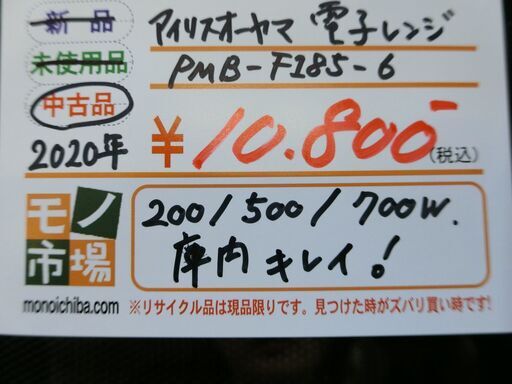 新品
アイリスオーヤマ 電子レンジ
未使用品
PMB-F185-6
中古品
2020年
¥10.800-(税込)
モノ市場
200/500/700W.
庫内キレイ!
monoichiba.com
※リサイクル品は現品限りです。見つけた時がズバリ買い時です!